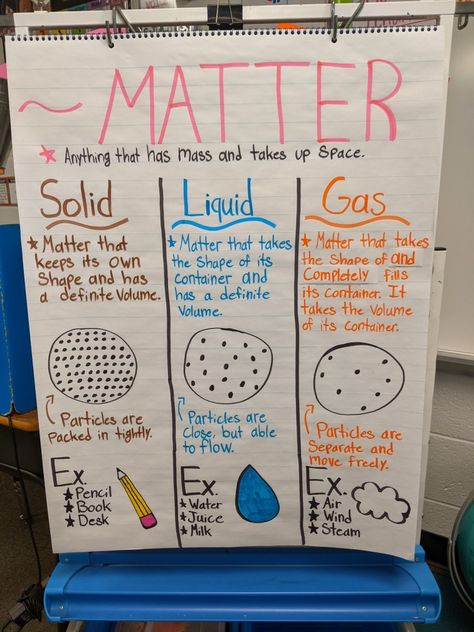 ~ MATTER
★ Anything that has mass and takes up space.
Solid
★ Matter that
keeps its own
Shape and has
a definite Volume.
Particles are
packed in tightly.
Ex.
★ Pencil
★ Book
★ Desk
Liquid
★ Matter that takes
the Shape of its
container and
has a definite
Volume.
Particles are
Close, but able
to flow.
Ex.
★ Water
★ Juice
★ Milk
Gas
★ Matter that takes
the Shape of and
Completely fills
its container. It
takes the Volume
of its Container.
Particles are
Separate and
move freely.
Ex.
★ Air
★ Wind
★ Steam